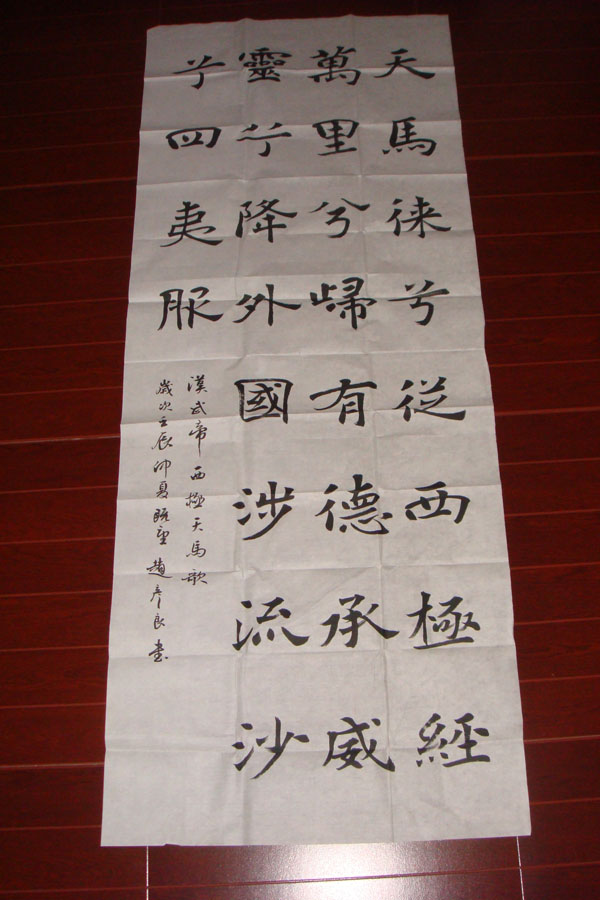 天馬徠兮從西極經
萬里兮歸有德承威
靈兮降外國涉流沙
兮四夷服
漢武帝西極天馬歌
歲次壬辰仲夏既望趙彥良書